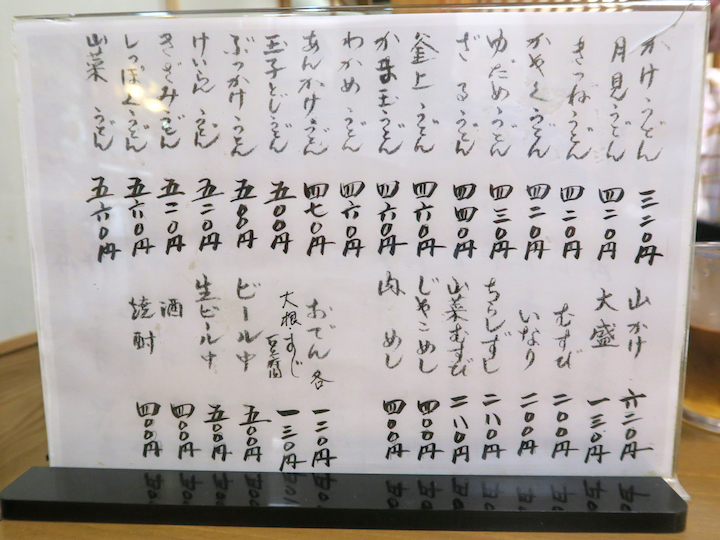 かけうどん 三二〇円
月見うどん 四二〇円
きつねうどん 四二〇円
かやくうどん 四二〇円
ゆだめうどん 四三〇円
ざるうどん 四四〇円
釜上うどん 四六〇円
かま玉うどん 四六〇円
わかめうどん 四六〇円
あんかけうどん 四七〇円
玉子どじうどん 五〇〇円
ぶっかけうどん 五〇〇円
けいらんうどん 五二〇円
きざみうどん 五二〇円
しっぽくうどん 五六〇円
山菜うどん 五六〇円
山かけ 六二〇円
大盛 一三〇円
むすび 二〇〇円
いなり 二〇〇円
ちらしずし 二八〇円
山菜むすび 二八〇円
じゃこめし 四〇〇円
肉めし 四〇〇円
おでん各 一二〇円
大根すじ豆腐 一三〇円
ビール中 五〇〇円
生ビール中 五〇〇円
酒 四〇〇円
焼酎 四〇〇円